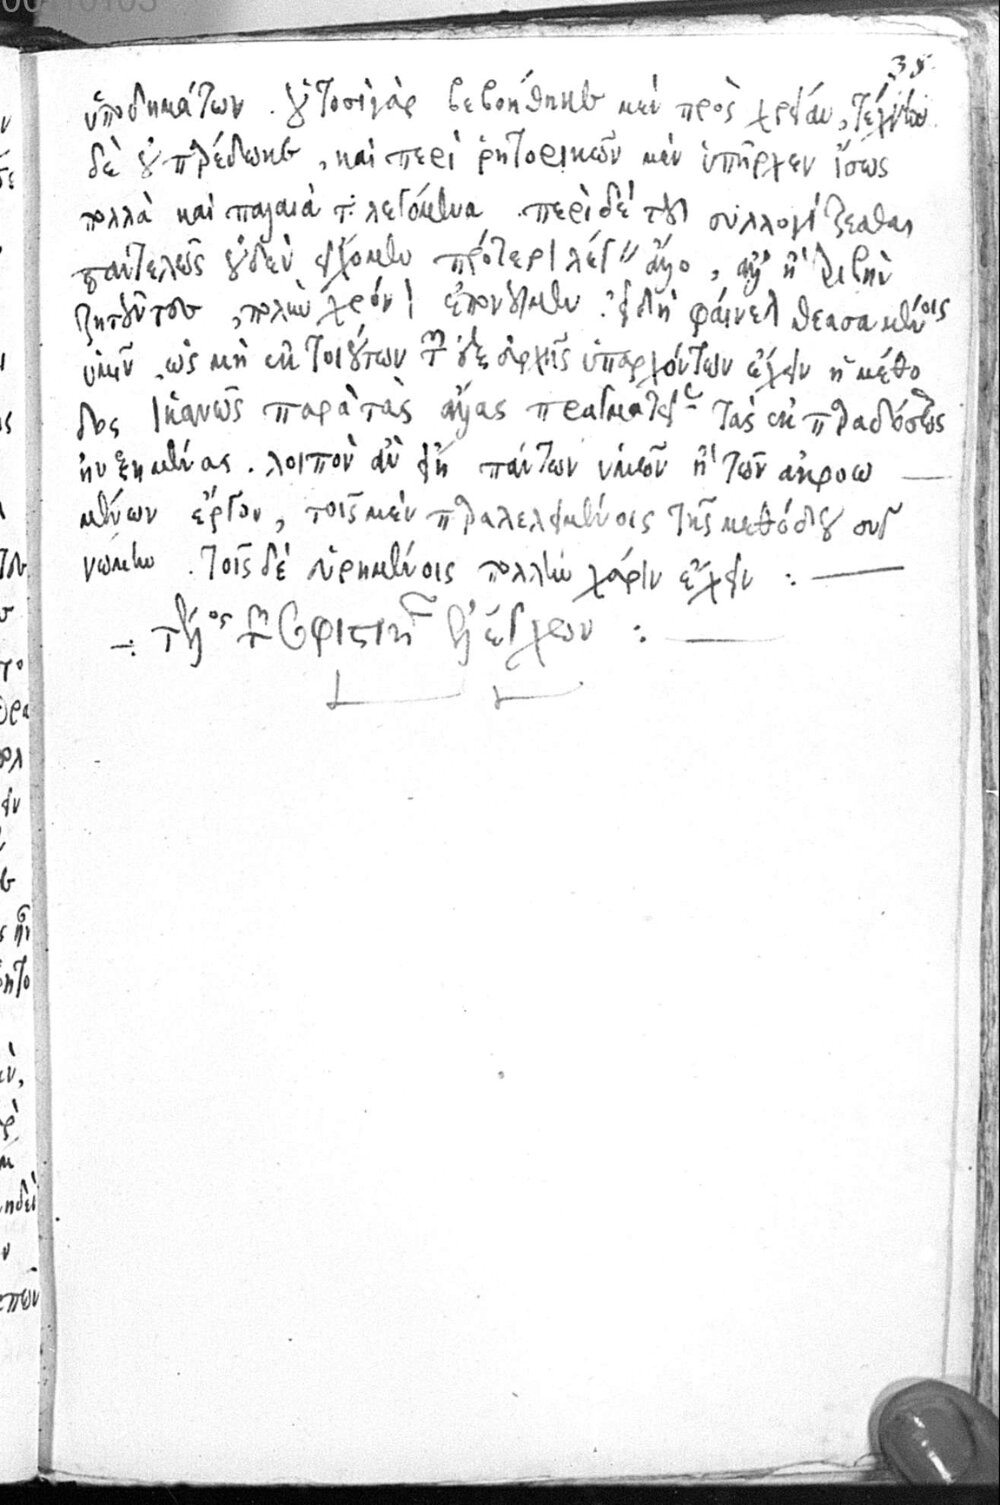 35
ὑποδημάτων. οὗτος γὰρ βεβοήθηκε μὲν πρὸς χρείαν, τέχνην
δὲ οὐ παρέδωκε, καὶ περὶ ῥητορικῶν μὲν ὑπῆρχεν ἴσως
πολλὰ καὶ παλαιὰ τὰ λεγόμενα. περὶ δὲ τοῦ συλλογίζεσθαι
παντελῶς οὐδὲν εἴχομεν πρότερον λέγειν ἄλλο, ἀλλ' ἢ τριβῇ
ζητοῦντες, πολὺν χρόνον ἐπονοῦμεν. εἰ δὴ φαίνεται θεασαμένοις
ὑμῖν, ὡς μὴ ἐκ τοιούτων τῶν ἐξ ἀρχῆς ὑπαρχόντων ἔχειν ἡ μέθο
δος ἱκανῶς παρὰ τὰς ἄλλας πραγματείας τὰς ἐκ παραδόσεως
ηὐξημένας. λοιπὸν ἂν εἴη πάντων ὑμῶν ἢ τῶν ἀκροω
μένων ἔργον, τοῖς μὲν παραλελειμμένοις τῆς μεθόδου συγ
γνώμην. τοῖς δὲ εὑρημένοις πολλὴν χάριν ἔχειν :
τέλος τῶν σοφιστικῶν ἐλέγχων :